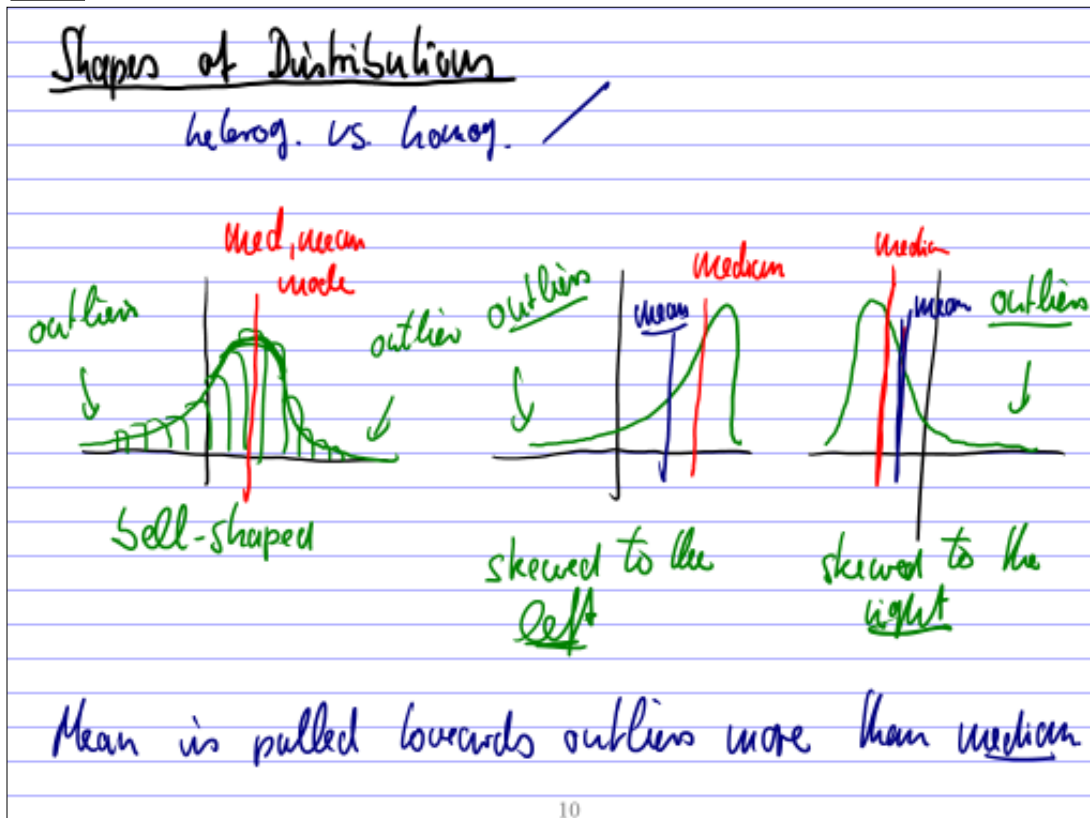 Shapes of Distributions
heterog. vs. homog.
med, mean
mode
outliers
outlier
bell-shaped
outliers
mean
median
skewed to the
left
median
mean
outliers
skewed to the
right
Mean is pulled towards outliers more than median
10